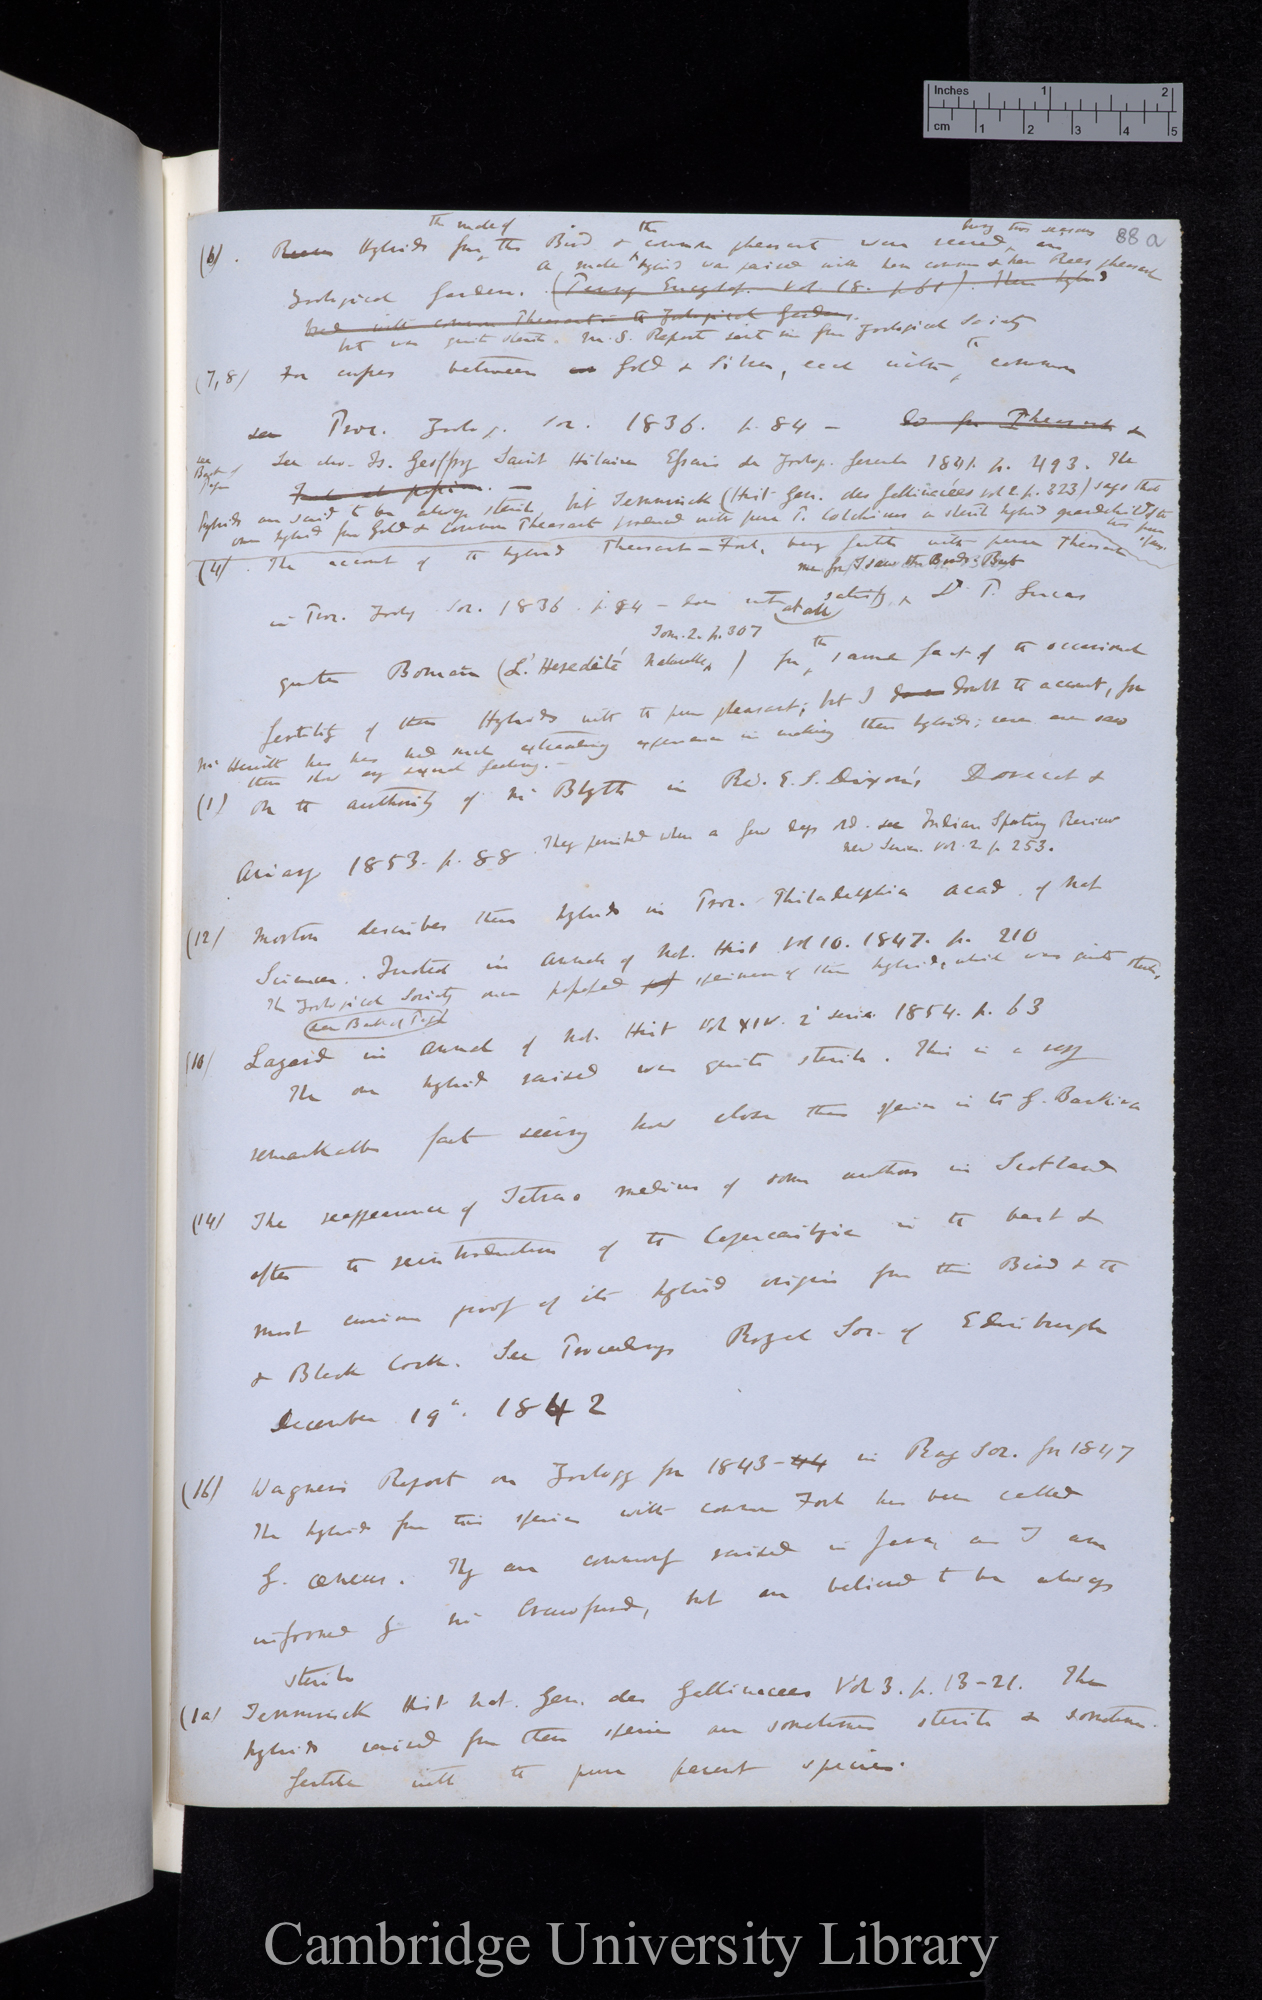 Inches 1 2
cm 1 2 3 4 5
88 a
the male of the during two seasons
(6) . Hybrids from the Bird & common pheasant were reared, in
a male hybrid was paired with hen common & hen pheasant
Zoological Gardens. (Penny Encyclop. Vol 18. p. 61). These hybrids
bred with common Pheasant in the Zoological Gardens.
but was quite sterile. M.S. Report sent me from Zoological Society
(7, 8) For crosses between Gold & Silver, each with the common
see Proc. Zoolog. Soc. 1836. p. 84 — Pheasant &
see Back of Page
See also Is. Geoffroy Saint Hilaire Essais de Zoolog. Generale 1841. p. 493. The
hybrids are said to be always sterile, but Temminck (Hist. Gen. des Gallinacées vol 2. p. 323) says that
one hybrid from Gold & common Pheasant produced with pure P. Colchicus a sterile hybrid grandchild of the
two pure species.
(4) . The account of the hybrid Pheasant – Fowl, being fertile with pure Pheasant
me, for I saw the Birds: But
in Proc. Zoolog. Soc. 1836. p. 84 – does not at all satisfy Dr P. Lucas
Tom. 2. p. 307
quotes Bomare (L'Heredité Naturelle, ) for the same fact of the occasional
fertility of these Hybrids with the pure pheasant; but I doubt the account, for
Mr Hewitt who has had such extraordinary experience in making these hybrids; never even saw
them show any sexual feeling. –
(1) On the authority of Mr Blyth in Rev. E. S. Dixon's Dovecot &
Aviary 1853. p. 88. They perished when a few days old. see Indian Sporting Review
new Series. vol. 2 p. 253.
(12) Morton describes these hybrids in Proc. Philadelphia Acad. of Nat
Sciences. . Quoted in Annals of Nat. Hist Vol 10. 1847. p. 210
The Zoological Society once possessed specimen of this hybrid, which was quite sterile,
(see Back of Page)
(10) in Annals of Nat. Hist Vol XIV. 2d series. 1854. p. 63
The one hybrid raised was quite sterile. This is a very
remarkable fact seeing how close this species is to G. Bankiva
(14) The reappearance of Tetrao medius of some authors in Scotland
after the reintroduction of the Capercailzie is the best &
most curious proof of its hybrid origin from this Bird & the
& Black Cock. See Proceedings Royal Soc. of Edinburgh
December 19th. 1842
(16) Wagner's Report on Zoology for 1843–44 in Ray Soc. for 1847
The hybrid from this species with common Fowl has been called
G. aeneus. They are commonly raised in Java, as I am
informed by Mr Crawfurd, but are believed to be always
sterile
(1a) Temminck Hist Nat. Gen. des Gallinacees Vol 3. p. 13–21. The
hybrids raised from these species are sometimes sterile & sometimes
fertile with the pure parent species.
Cambridge University Library